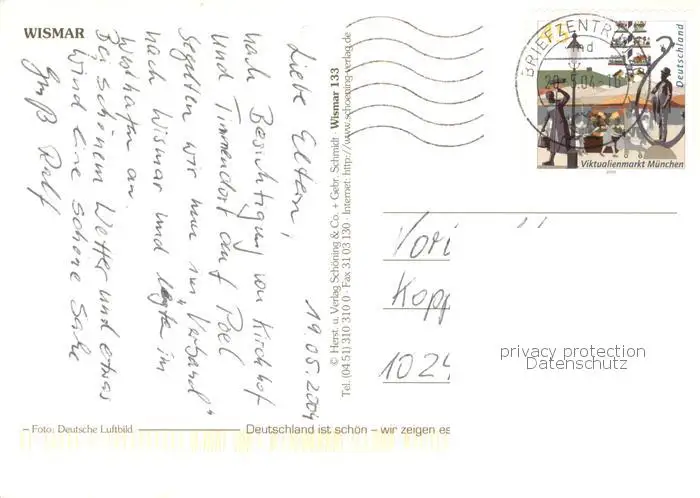 WISMAR
19.05.2004
Liebe Eltern,
nach Besichtigung von Kirchhof
und Timmendorf auf Poel
segelten wir nun im "Verband"
nach Wismar und legten im
Westhafen an.
Bei schönem Wetter und etwas
Wind eine schöne Sache
Gruß Ralf
© Herst. u. Verlag Schöning & Co. + Gebr. Schmidt · Wismar 133
Tel. (04 51) 310 310 0 · Fax 31 03 130 · Internet: http://www.schoening-verlag.de
BRIEFZENTR
Deutschland
Viktualienmarkt München
Kopp
1024
privacy protection
Datenschutz
– Foto: Deutsche Luftbild
Deutschland ist schön – wir zeigen es